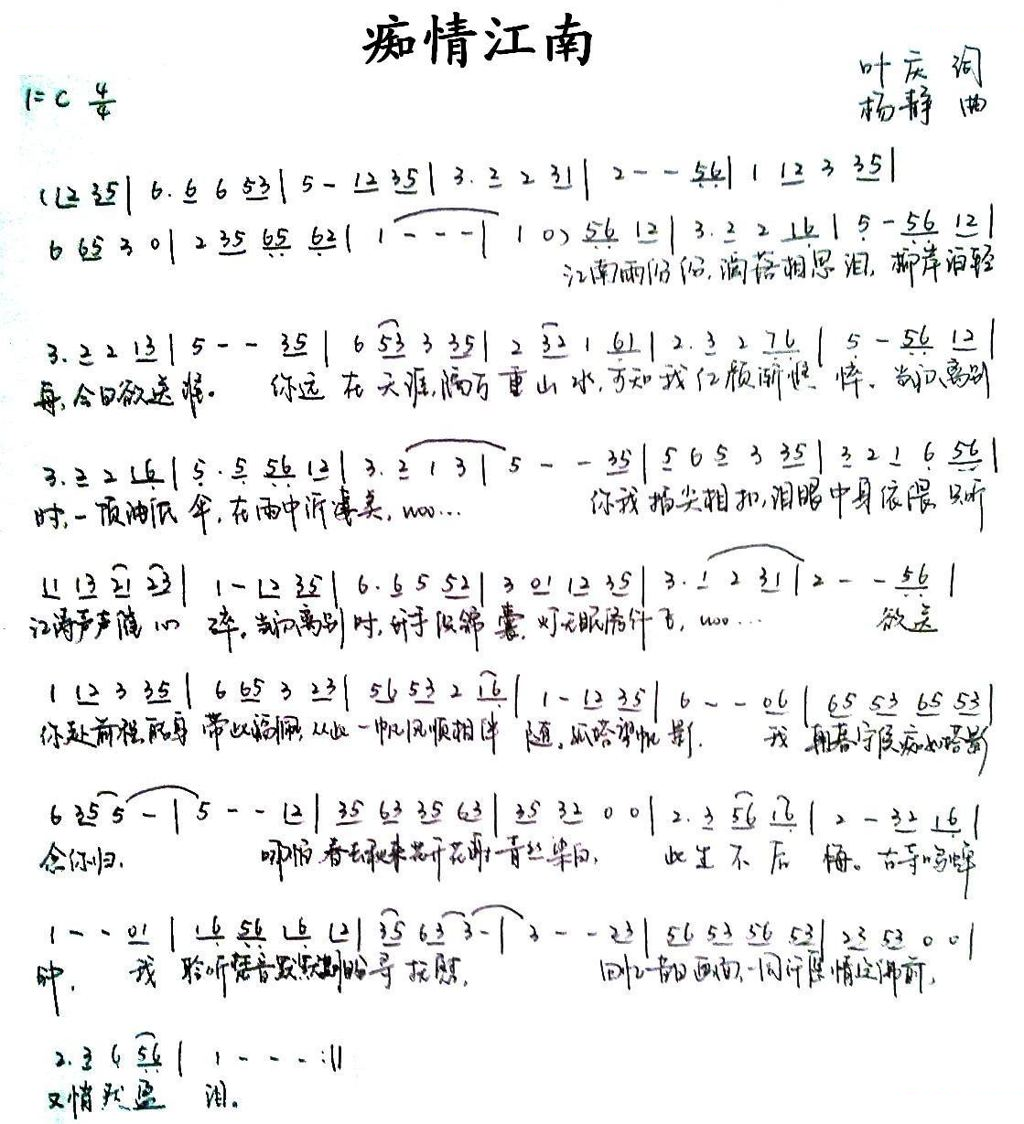 痴情江南
叶庆 词
1=C 4/4
杨静 曲
(12 35| 6. 6 6 53| 5 - 12 35| 3. 2 2 31| 2 - - 56| 1 12 3 35|
6 65 3 0| 2 35 65 62| 1 - - -| 1 0) 56 12| 3. 2 2 16| 5 - 56 12|
江南雨纷纷,滴落相思泪,柳岸泊轻
3. 2 2 13| 5 - - 35| 6 53 3 35| 2 32 1 61| 2. 3 2 76| 5 - 56 12|
今日欲送谁。 你远在天涯,隔万重山水,可知我红颜渐憔悴。当初离别
3. 2 2 16| 5. 5 56 12| 3. 2 1 3| 5 - - 35| 5 6 5 3 35| 3 2 1 6 56|
时,一顶油纸伞,在雨中 美,woo... 你我指尖相扣,泪眼中身依偎 只听
11 13 21 23| 1 - 12 35| 6. 6 5 52| 3 01 12 35| 3. 1 2 31| 2 - - 56|
江涛声声随心碎。当初离别时, 手 锦囊, 无眠 飞,woo... 欲送
1 12 3 35| 6 65 3 23| 56 53 2 16| 1 - 12 35| 6 - - 06| 65 53 65 53|
你赴前程 带此福佩,从此一帆风顺相伴随。 塔望帆影. 我朝暮守候痴如塔影
6 35 5 -| 5 - - 12| 35 63 35 63| 35 32 0 0| 2. 3 56 16| 2 - 32 16|
念你归. 哪怕春去秋来花开花谢青丝染白, 此生不后悔。古寺鸣蝉
1 - - 01| 16 56 16 12| 35 63 3 -| 3 - - 23| 56 53 56 53| 23 53 0 0|
钟, 我聆听梵音默默 寻抚慰, 回忆昔日画面,一同许愿情定佛前,
2. 3 6 56| 1 - - - :||
又悄然盈泪。